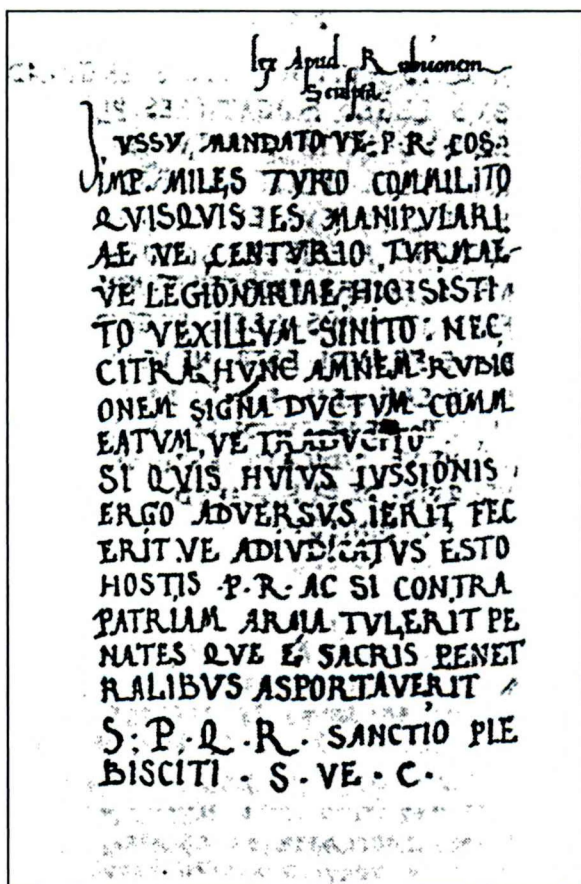 lex Apud Rubiconem
Sculpta.
IVSSV, MANDATO VE. P. R. COS.
IMP. MILES TYRO COMMILITO
QVISQVIS ES MANIPVLARI
AE VE CENTVRIO TVRMAE
VE LEGIONARIAE HIC SISTI
TO VEXILLVM SINITO. NEC
CITRA HVNC AMNEM RVBIC
ONEM SIGNA DVCTVM COMM
EATVM, VE TRADVCITO
SI QVIS HVIVS IVSSIONIS
ERGO ADVERSVS IERIT FEC
ERIT. VE ADIVDICATVS ESTO
HOSTIS . P. R. AC SI CONTRA
PATRIAM ARMA TVLERIT PE
NATES QVE E SACRIS PENET
RALIBVS ASPORTAVERIT
S. P. Q. R. SANCTIO PLE
BISCITI . S . VE . C .